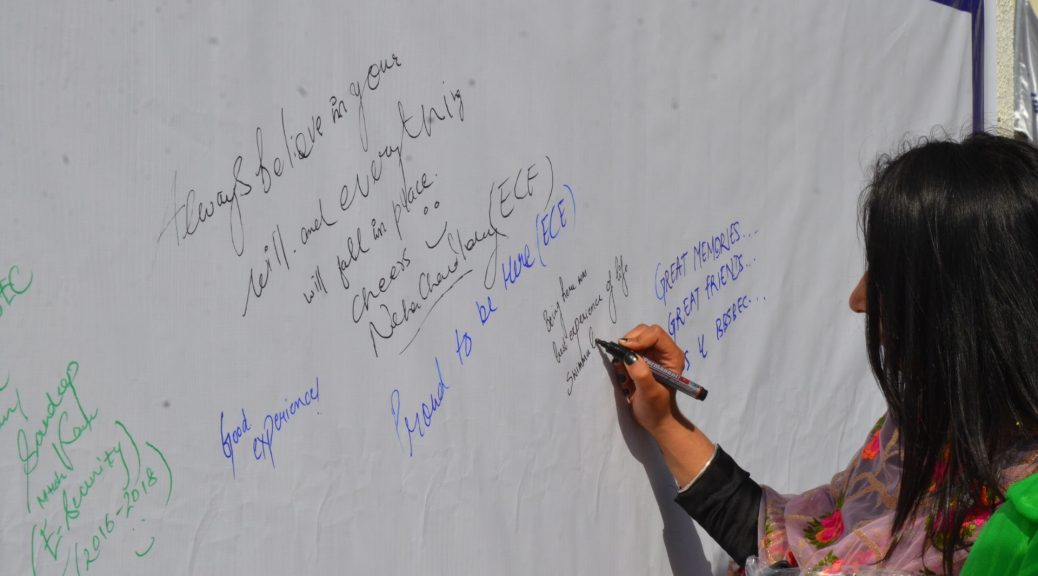 Always believe in your
will. and everything
will fall in place.
cheers
Neha Chandlay (ECE)
Proud to be Here (ECE)
Being here was
best experience of life
GREAT MEMORIES...
GREAT FRIENDS...
BBSBEC...
Good
experience!
Sandeep
(E-Security)
(2016-2018)